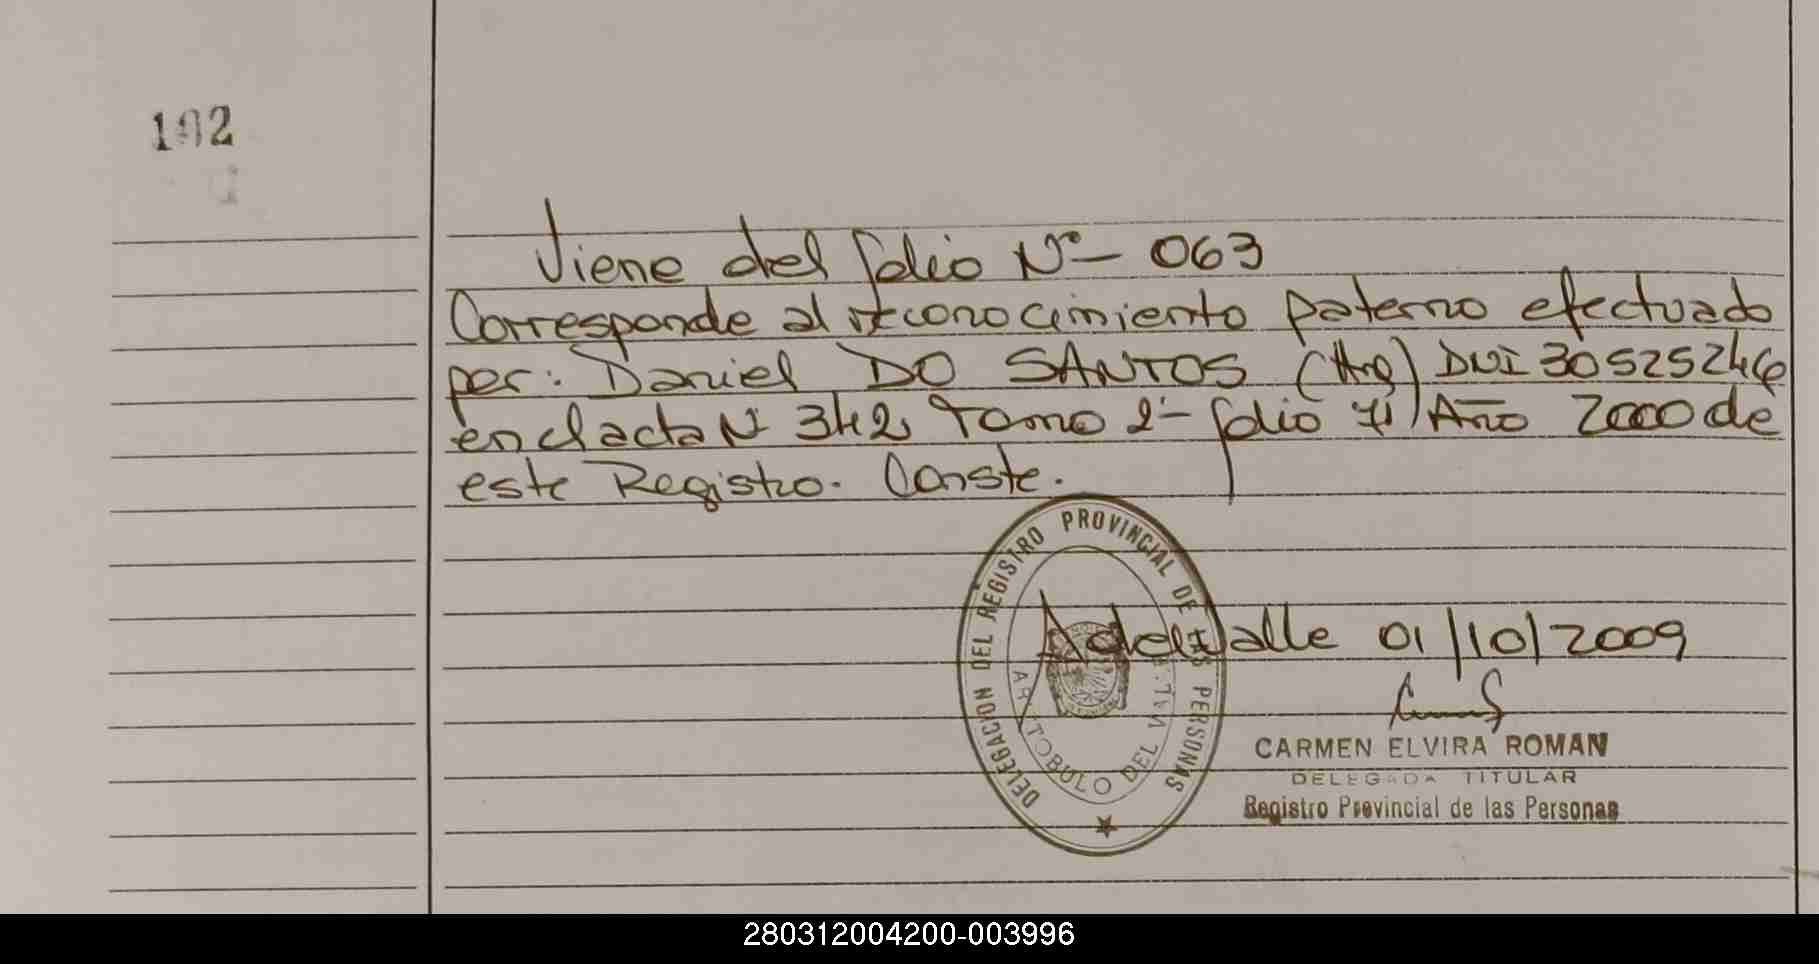 102
Viene del folio Nº- 063
Corresponde al reconocimiento paterno efectuado
por: Daniel DO SANTOS (Arg) DNI 30525246
en el acta Nº 342, Tomo 2º- folio 71 Año 2000 de
este Registro. Conste.
DELEGACION DEL REGISTRO PROVINCIAL DE LAS PERSONAS
ARISTOBULO DEL VALLE
A del Valle 01/10/2009
CARMEN ELVIRA ROMAN
DELEGADA TITULAR
Registro Provincial de las Personas
280312004200-003996